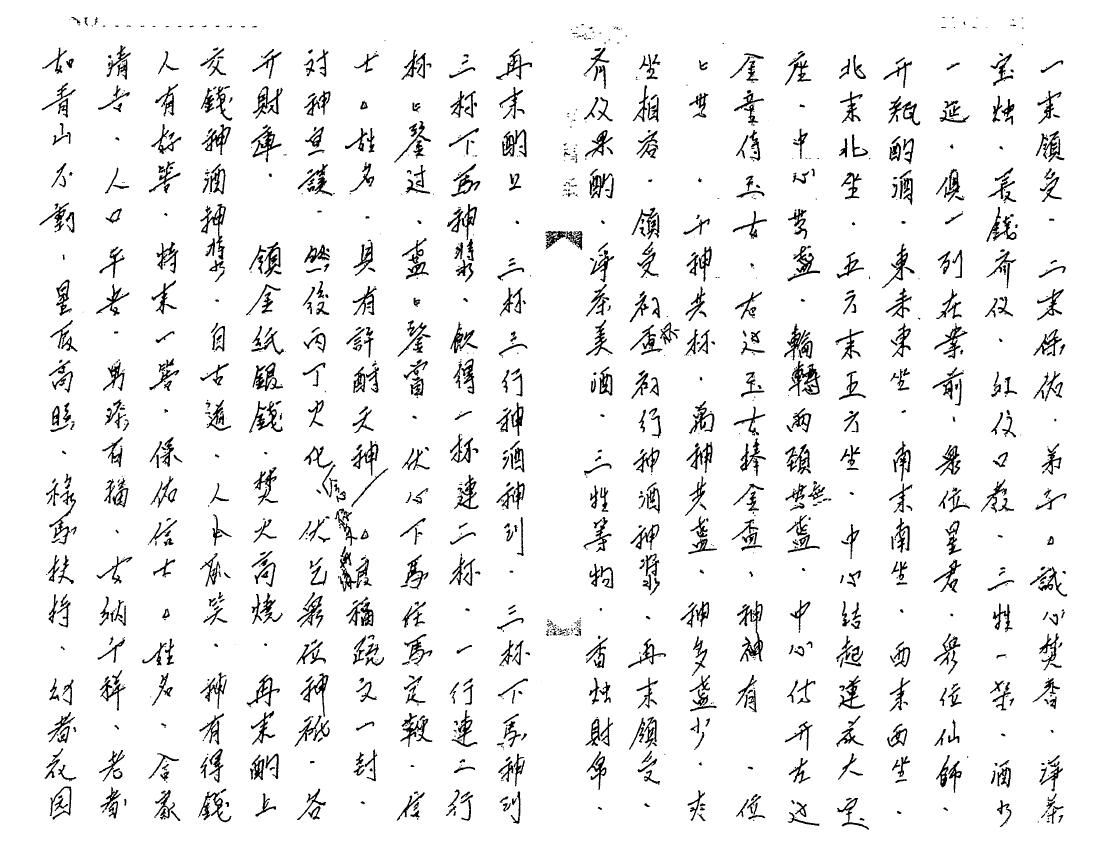 一来領受．二来保佑．弟子△誠心焚香．淨茶
宝烛．長錢斉仪．紅仪口教．三牲一架．酒水
一延．俱一列在案前．眾位星君．眾位仙師．
开瓶酌酒．東来東坐．南来南坐．西来西坐．
北来北坐．五方来五方坐．中心結起蓮花大宝
座．中心营盞．輪轉兩頭無盞．中心付开左边
金童侍玉女．右边玉女捧金盃．神神有．位
千神共杯．萬神共盞．神多盞少．
坐相容．領受初盃初行神酒神漿．再来領受．
斉仪果酌．淨茶美酒．三牲等物．香烛財帛．
再来酌旦．三杯三行神酒神到．三杯下馬神到
三杯下馬神漿．飲得一杯連二杯．一行連二行
杯盞过．盞當．伏心下馬住馬定鞭．信
士△姓名．具有許酧天神△度福疏文一封．
对神宣讀．然後丙丁火化．伏乞眾位神祇．答
开財庫．領金紙銀錢．焚火高燒．再来酌上
交錢神酒神漿．自古道．人笑．神有得錢
人有好．特来一．保佑信士△姓名．合家
清吉．人口平安．男添有福．女納千祥．老者
如青山不動．星辰高照．祿馬扶持．幼者花园